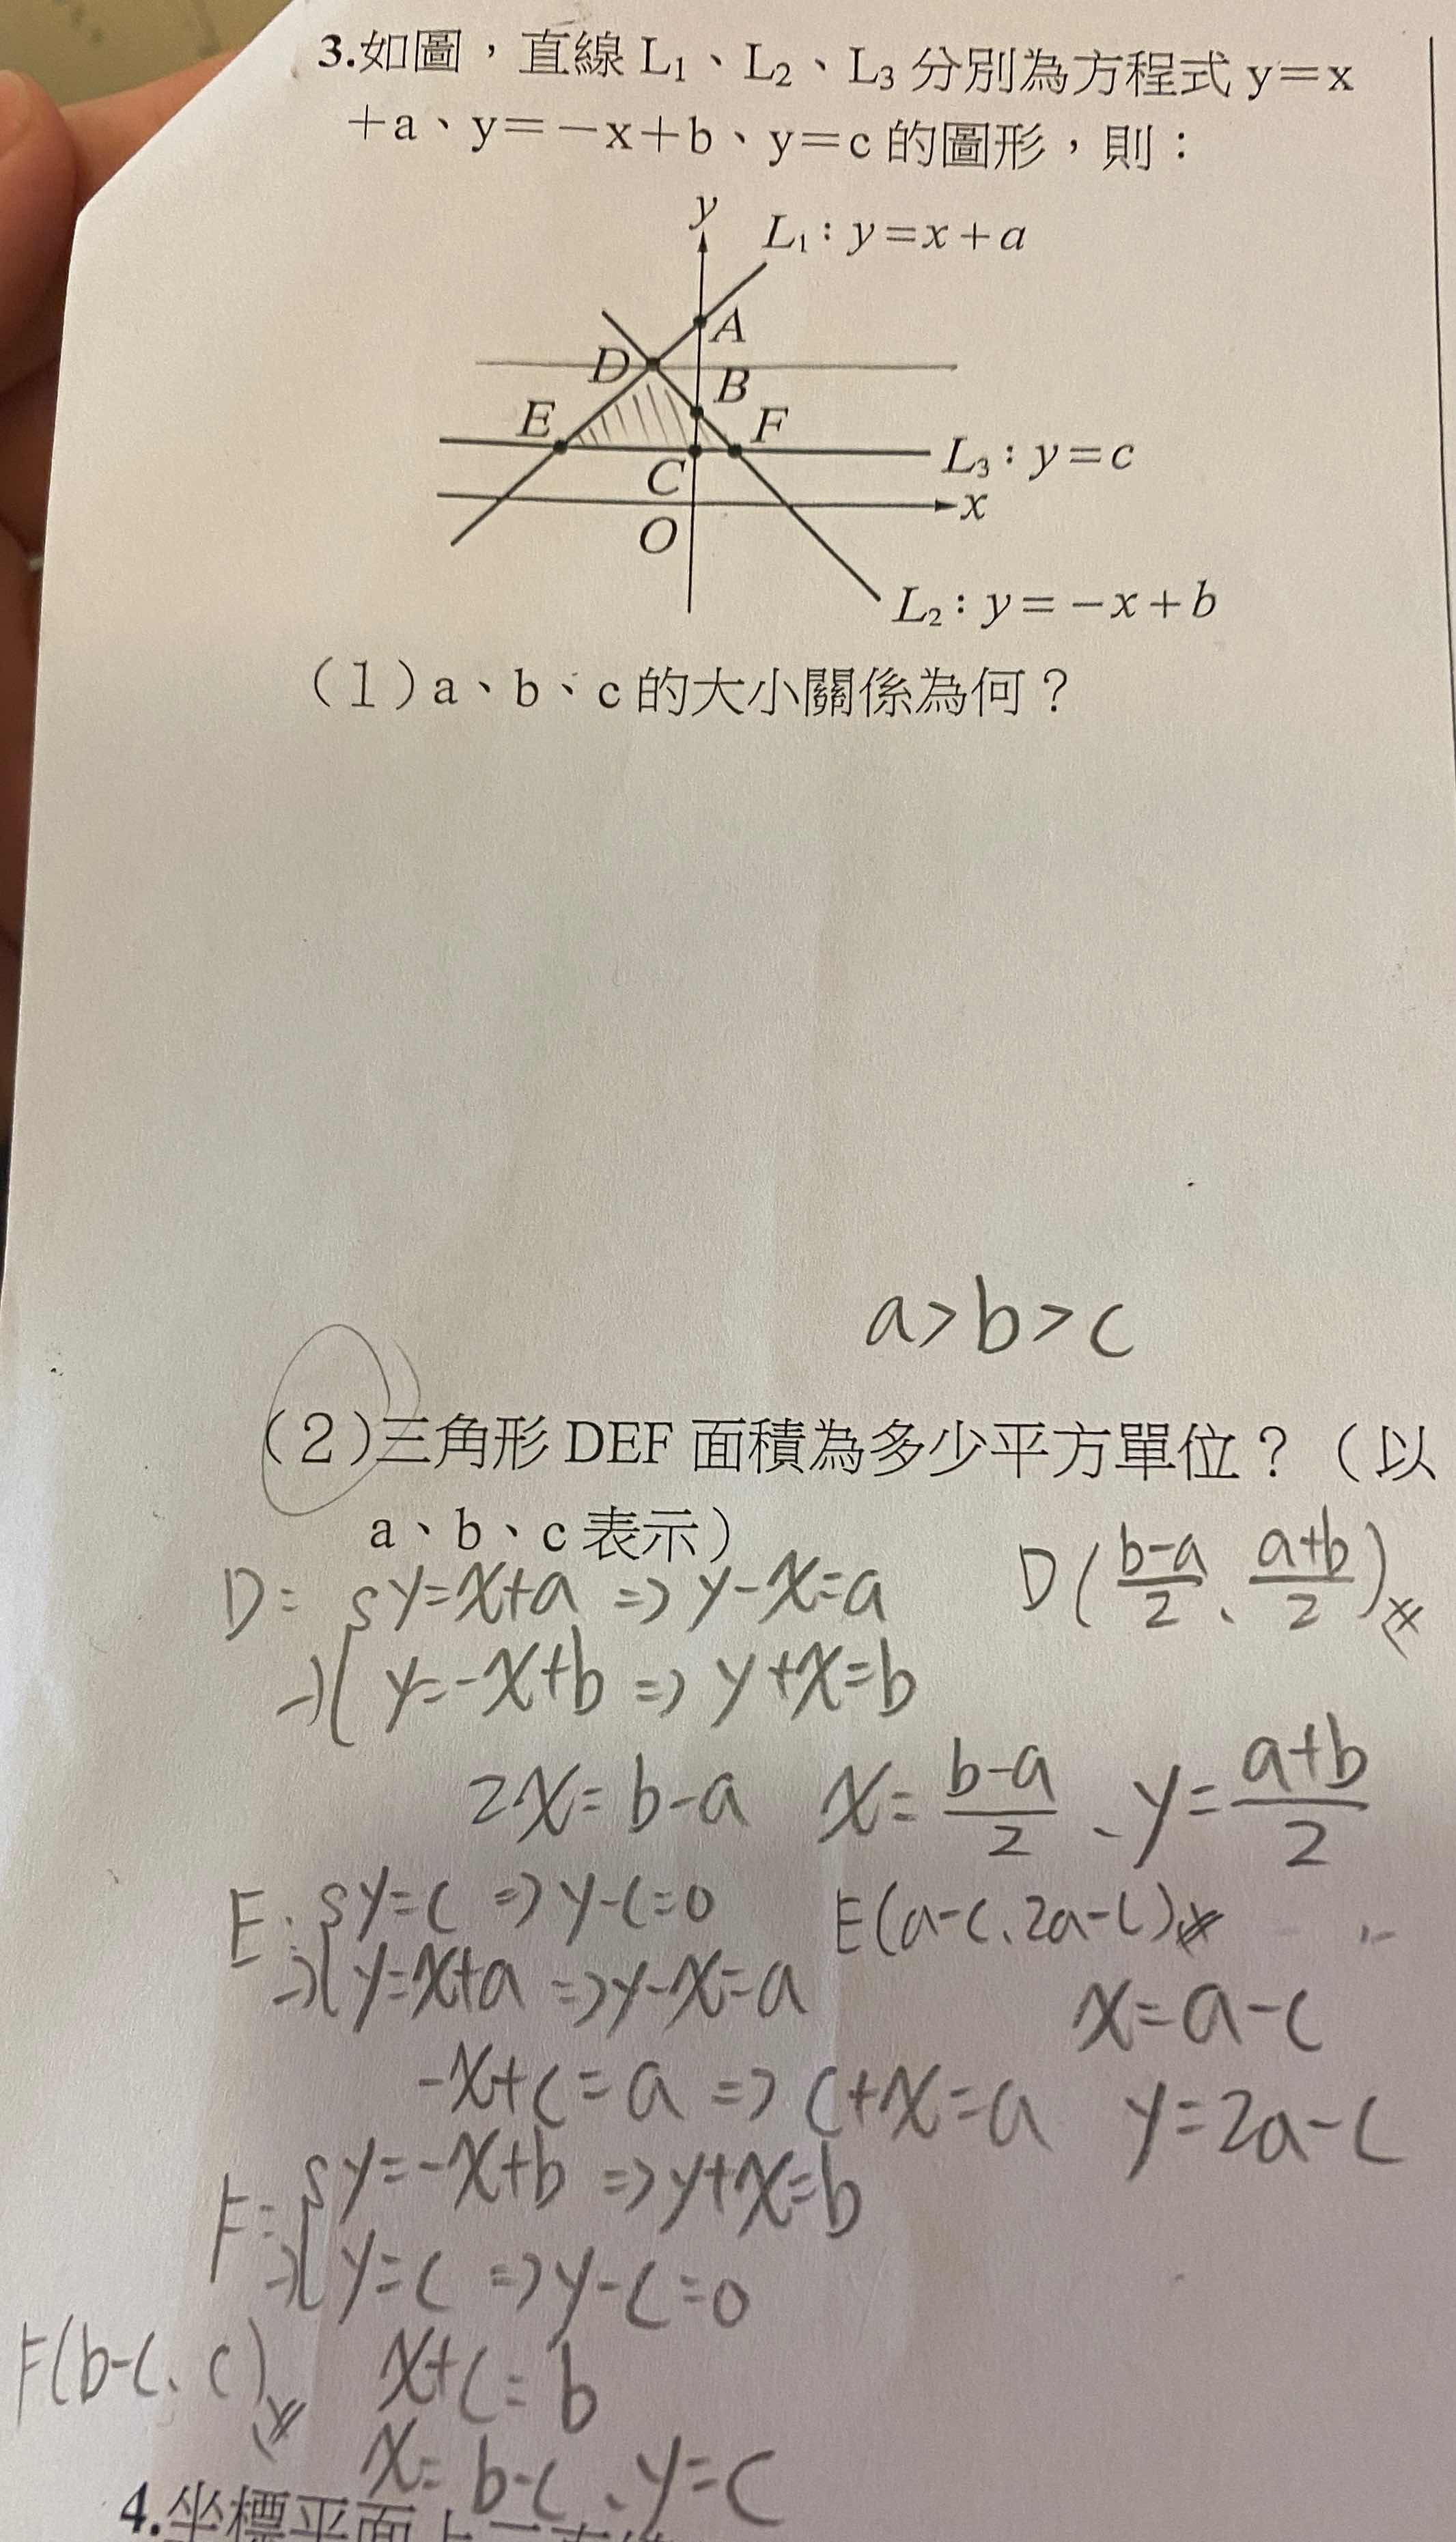 3.如圖，直線 L₁、L₂、L₃ 分別為方程式 y＝x
＋a、y＝－x＋b、y＝c 的圖形，則：
y
L₁：y＝x＋a
A
D
B
E
F
L₃：y＝c
C
x
O
L₂：y＝－x＋b
（1）a、b、c 的大小關係為何？
a>b>c
（2）三角形 DEF 面積為多少平方單位？（以
a、b、c 表示）
D= { y=x+a => y-x=a
D(\frac{b-a}{2}、\frac{a+b}{2})
→{ y=-x+b => y+x=b
2x=b-a x=\frac{b-a}{2}、y=\frac{a+b}{2}
E: { y=c => y-c=0 E(a-c、2a-c)
→{ y=x+a => y-x=a
x=a-c
-x+c=a => c+x=a y=2a-c
F= { y=-x+b => y+x=b
→{ y=c => y-c=0
F(b-c、c) x+c=b
x=b-c、y=c
4.坐標平面上